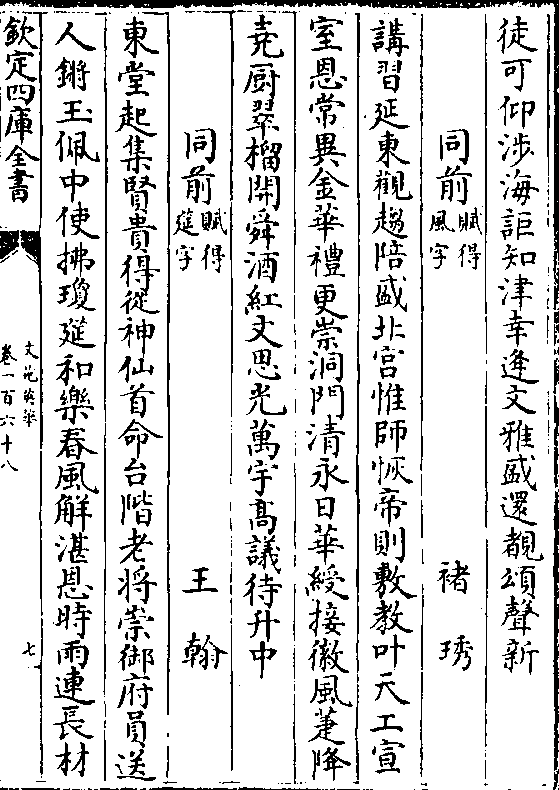 徒可仰涉海詎知津幸逢文雅盛還覩頌聲新
同前賦得風字 褚琇
講習延東觀趨陪盛北宮惟師恢帝則敷教叶天工宣
室恩常異金華禮更崇洞門清永日華綬接徽風蓂降
堯厨翠榴開舜酒紅文思光萬宇髙議待升中
同前賦得筵字 王翰
東堂起集賢貴得從神仙首命台階老將崇御府員送
人鏘玉佩中使拂瓊筵和樂春風解湛恩時雨連長材
欽定四庫全書
文苑英華
卷一百六十八
七